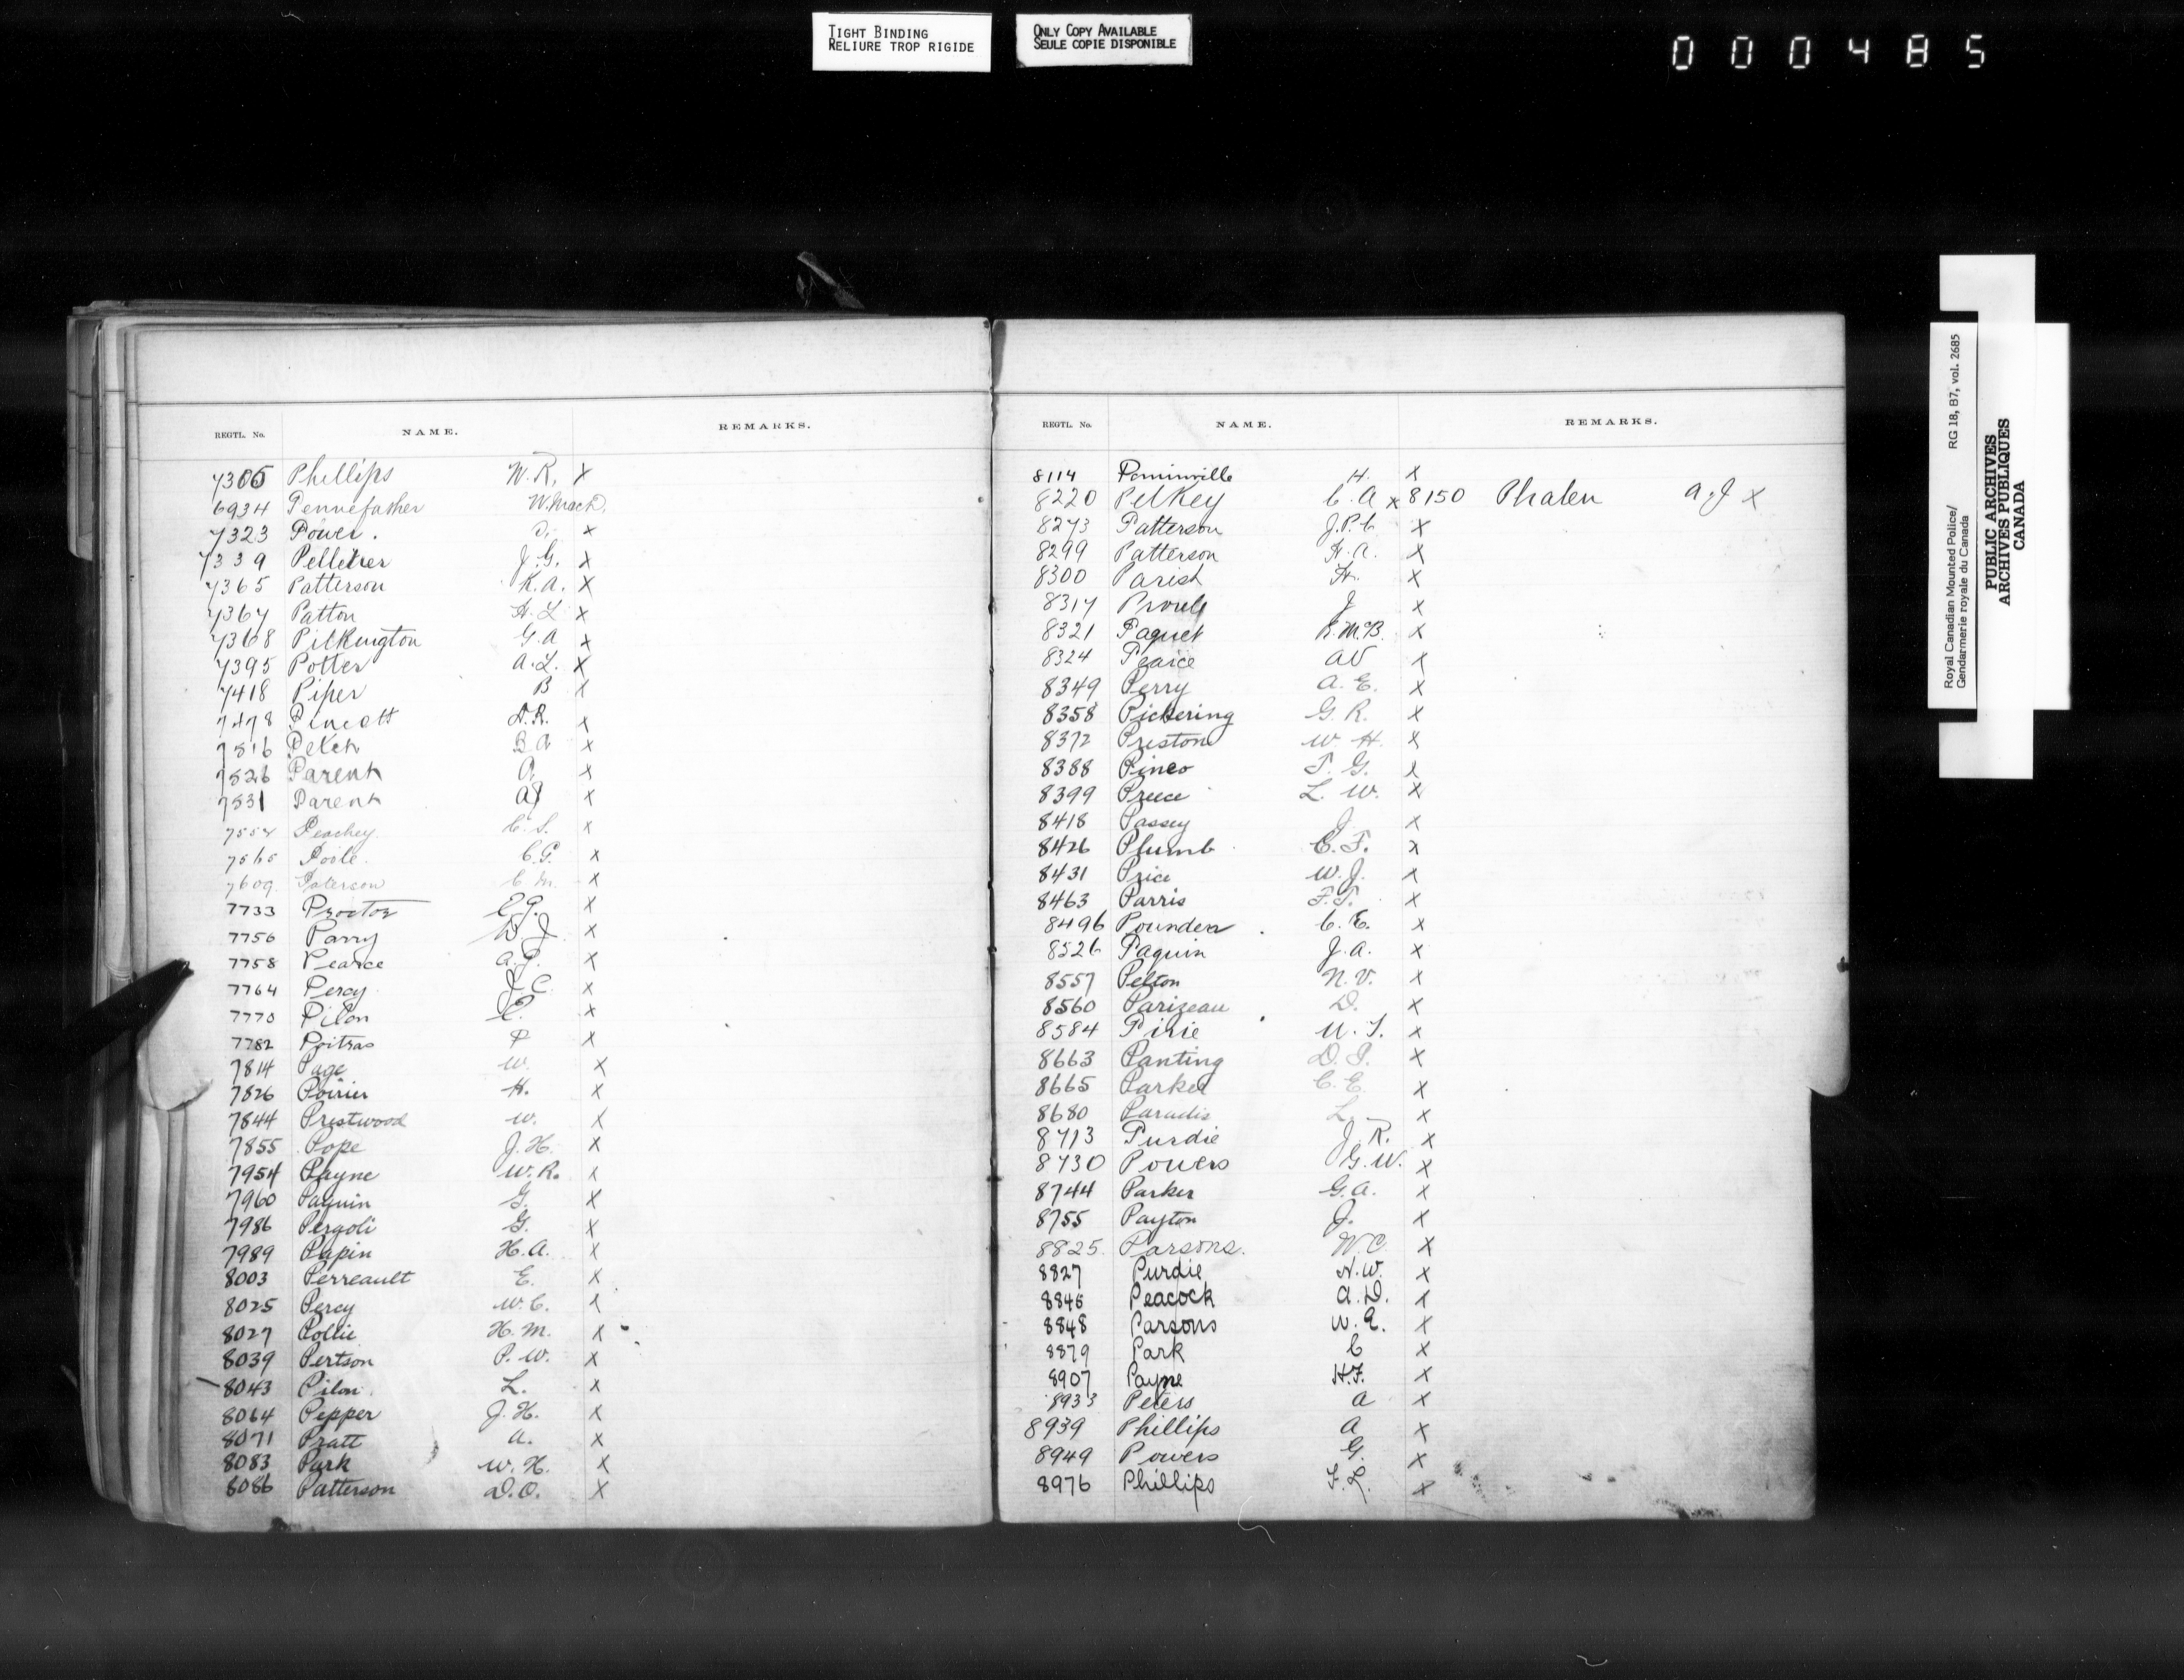 TIGHT BINDING
RELIURE TROP RIGIDE
ONLY COPY AVAILABLE
SEULE COPIE DISPONIBLE
000485
REGTL. No. NAME. REMARKS.
Phillips W. R. X
6934 Pennefather W. Mack.
7323 Power. X
7339 Pelletier J. G. X
7365 Patterson K. A. X
7367 Patton H. L X
7368 Pilkington G. A X
7395 Potter A. L. X
7418 Piper B X
7478 Pincott X
7516 B A X
7526 Parent A. X
7531 Parent AJ X
7554 Peachey C. S. X
7565 Poole. C. G. X
7609. Paterson C. M. X
7733 Proctor E. G. X
7756 Parry D. J. X
7758 Pearce A. P. X
7764 Percy J. C. X
7770 Pilon E. X
7782 Poitras P X
7814 Page W. X
7826 Poirier H. X
7844 Prestwood W. X
7855 Pope J. H. X
7954 Payne W. R. X
7960 Paquin G. X
7986 Pergoli G. X
7989 Papin H. A. X
8003 Perreault E. X
8025 Percy W. C. X
8027 Pollie H. M. X
8039 Pertson P. W. X
8043 Pilon. L. X
8064 Pepper J. H. X
8071 Pratt A. X
8083 Park W. H. X
8086 Patterson D. O. X
REGTL. No. NAME. REMARKS.
8114 Pominville H. X
8220 Pelkey C. A X 8150 Phalen A. J X
8273 Patterson J. P. C X
8299 Patterson H. A. X
8300 Parish H. X
8317 Proulx J X
8321 Paquet R. M. B. X
8324 Pearce AV X
8349 Perry A. E. X
8358 Pickering G. R. X
8372 Preston W. H. X
8388 Pineo T. G. X
8399 Preece L. W. X
8418 Passey J. X
8426 Plumb C. F. X
8431 Price W. J. X
8463 Parris F. T. X
8496 Pounder C. E. X
8526 Paquin J. A. X
8557 Pelton N. V. X
8560 Parizeau D. X
8584 Pirie X
8663 Panting D. P. X
8665 Parker C. E. X
8680 Paradis L. X
8713 Purdie J. R. X
8730 Powers G. W. X
8744 Parker G. A. X
8755 Payton J. X
8825. Parsons. W. C. X
8827 Purdie N. W. X
8846 Peacock A. D. X
8848 Parsons W. E. X
8879 Park C X
8907 Payne H. F. X
8933 Peters A X
8939 Phillips A X
8949 Powers G. X
8976 Phillips F. L. X
Royal Canadian Mounted Police/ RG 18, B7, vol. 2685
Gendarmerie royale du Canada
PUBLIC ARCHIVES
ARCHIVES PUBLIQUES
CANADA